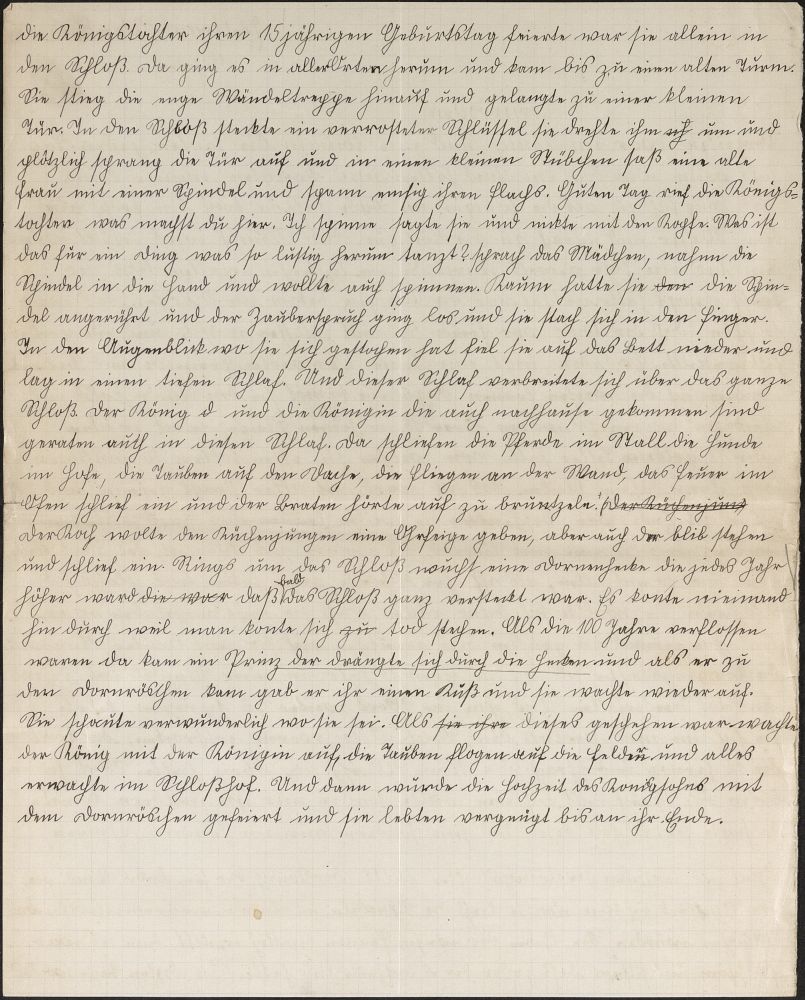 die Königstochter ihren 15 jährigen Geburtstag feierte war sie allein in
den Schloß. Da ging es in aller Orten herum und kam bis zu einen alten Turm.
Sie stieg die enge Wändeltreppe hinauf und gelangte zu einer kleinen
Tür. In den Schloß steckte ein verrosteter Schlüssel sie drehte ihm um und
plötzlich sprang die Tür auf und in einen kleinen Stübchen saß eine alte
Frau mit einer Spindel und spann emsig ihren Flachs. Guten Tag rief die Königs-
tochter was machst du hier. Ich spinne sagte sie und nickte mit den Kopfe. Was ist
das für ein Ding was so lustig herum tanzt? sprach das Mädchen, nahm die
Spindel in die Hand und wollte auch spinnen. Kaum hatte sie den die Spin-
del angerührt und der Zauberspruch ging los und sie stach sich in den Finger.
In den Augenblick wo sie sich gestochen hat fiel sie auf das Bett nieder und
lag in einen tiefen Schlaf. Und dieser Schlaf verbreitete sich über das ganze
Schloß. Der König d und die Königin die auch nachhause gekommen sind
geraten auch in diesen Schlaf. Da schliefen die Pferde im Stall die Hunde
im Hofe, die Tauben auf den Dache, die Fliegen an der Wand, das Feuer im
Ofen schlief ein und der Braten hörte auf zu brutzeln. (Der Küchenjung)
Der Koch wolte den Küchenjungen eine Ohrfeige geben, aber auch der blib stehen
und schlief ein. Rings um das Schloß wuchs eine Dornenhecke die jedes Jahr
höher ward die war daß bald das Schloß ganz versteckt war. Es konte nieinand
hin durch weil man konte sich zu tod stechen. Als die 100 Jahre verflossen
waren da kam ein Prinz der drängte sich durch die Hecken und als er zu
den Dornröschen kam gab er ihr einen Kuß und sie wachte wieder auf.
Sie schaute verwunderlich wo sie sei. Als sie ihre dieses geschehen war wachte
der König mit der Königin auf, die Tauben flogen auf die Felder und alles
erwachte im Schloßhof. Und dann wurde die Hochzeit des Königsohns mit
dem Dornröschen gefeiert und sie lebten vergnügt bis an ihr Ende.